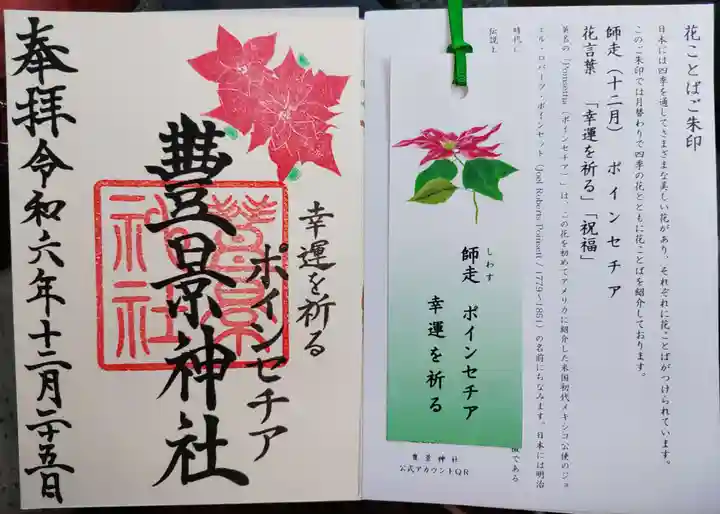 花ことばご朱印
日本には四季を通してさまざまな美しい花があり、それぞれに花ことばがつけられています。
このご朱印では月替わりで四季の花とともに花ことばを紹介しております。
師走(十二月) ポインセチア
花言葉 「幸運を祈る」「祝福」
英名の「Poinsettia(ポインセチア)」は、この花を初めてアメリカに紹介した米国初代メキシコ公使のジョ
エル・ロバーツ・ポインセット(Joel Roberts Poinsett / 1779〜1851)の名前にちなみます。日本には明治
時代に
伝説上
である
しわす
師走 ポインセチア
幸運を祈る
豊景神社
公式アカウントQR
幸運を祈る
ポインセチア
豐景神社
豐景神社
奉拝
令和六年十二月二十五日